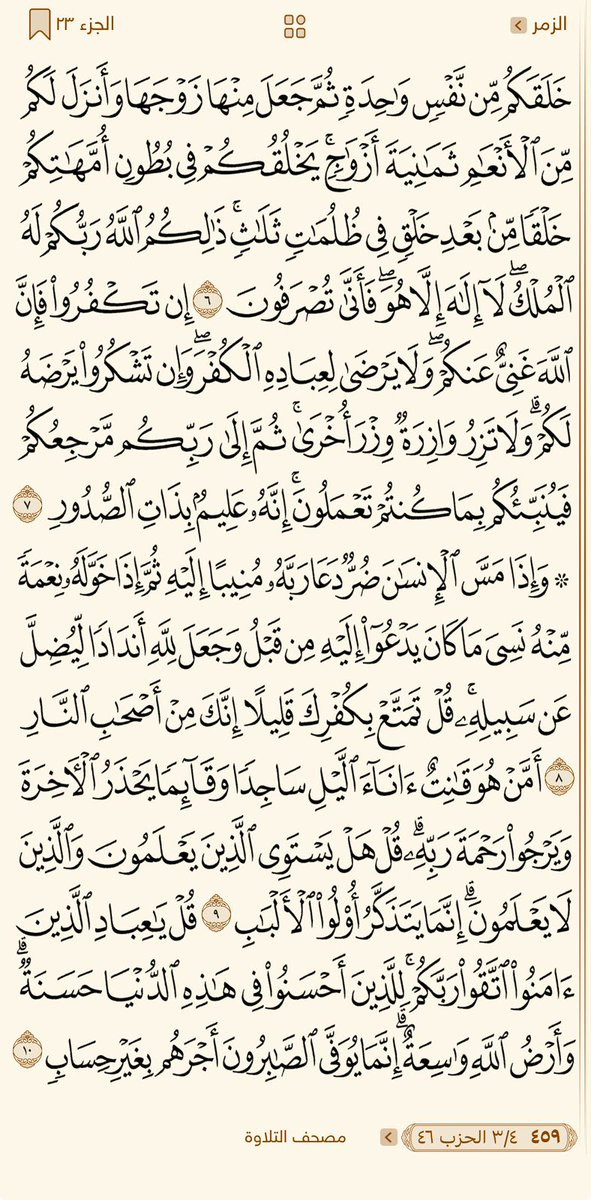 الزمر
الجزء ٢٣
خَلَقَكُم مِّن نَّفۡسٖ وَٰحِدَةٖ ثُمَّ جَعَلَ مِنۡهَا زَوۡجَهَا وَأَنزَلَ لَكُم
مِّنَ ٱلۡأَنۡعَٰمِ ثَمَٰنِيَةَ أَزۡوَٰجٖۚ يَخۡلُقُكُمۡ فِي بُطُونِ أُمَّهَٰتِكُمۡ
خَلۡقٗا مِّنۢ بَعۡدِ خَلۡقٖ فِي ظُلُمَٰتٖ ثَلَٰثٖۚ ذَٰلِكُمُ ٱللَّهُ رَبُّكُمۡ لَهُ
ٱلۡمُلۡكُۖ لَآ إِلَٰهَ إِلَّا هُوَۖ فَأَنَّىٰ تُصۡرَفُونَ ٦ إِن تَكۡفُرُواْ فَإِنَّ
ٱللَّهَ غَنِيٌّ عَنكُمۡۖ وَلَا يَرۡضَىٰ لِعِبَادِهِ ٱلۡكُفۡرَۖ وَإِن تَشۡكُرُواْ يَرۡضَهُ
لَكُمۡۗ وَلَا تَزِرُ وَازِرَةٞ وِزۡرَ أُخۡرَىٰۚ ثُمَّ إِلَىٰ رَبِّكُم مَّرۡجِعُكُمۡ
فَيُنَبِّئُكُم بِمَا كُنتُمۡ تَعۡمَلُونَۚ إِنَّهُۥ عَلِيمُۢ بِذَاتِ ٱلصُّدُورِ ٧
۞ وَإِذَا مَسَّ ٱلۡإِنسَٰنَ ضُرّٞ دَعَا رَبَّهُۥ مُنِيبًا إِلَيۡهِ ثُمَّ إِذَا خَوَّلَهُۥ نِعۡمَةٗ
مِّنۡهُ نَسِيَ مَا كَانَ يَدۡعُوٓاْ إِلَيۡهِ مِن قَبۡلُ وَجَعَلَ لِلَّهِ أَندَادٗا لِّيُضِلَّ
عَن سَبِيلِهِۦۚ قُلۡ تَمَتَّعۡ بِكُفۡرِكَ قَلِيلًا إِنَّكَ مِنۡ أَصۡحَٰبِ ٱلنَّارِ
٨ أَمَّنۡ هُوَ قَٰنِتٌ ءَانَآءَ ٱلَّيۡلِ سَاجِدٗا وَقَآئِمٗا يَحۡذَرُ ٱلۡأٓخِرَةَ
وَيَرۡجُواْ رَحۡمَةَ رَبِّهِۦۗ قُلۡ هَلۡ يَسۡتَوِي ٱلَّذِينَ يَعۡلَمُونَ وَٱلَّذِينَ
لَا يَعۡلَمُونَۗ إِنَّمَا يَتَذَكَّرُ أُوْلُواْ ٱلۡأَلۡبَٰبِ ٩ قُلۡ يَٰعِبَادِ ٱلَّذِينَ
ءَامَنُواْ ٱتَّقُواْ رَبَّكُمۡۚ لِلَّذِينَ أَحۡسَنُواْ فِي هَٰذِهِ ٱلدُّنۡيَا حَسَنَةٞۗ
وَأَرۡضُ ٱللَّهِ وَٰسِعَةٌۗ إِنَّمَا يُوَفَّى ٱلصَّٰبِرُونَ أَجۡرَهُم بِغَيۡرِ حِسَابٖ ١٠
٤٥٩ ٣/٤ الحزب ٤٦
مصحف التلاوة